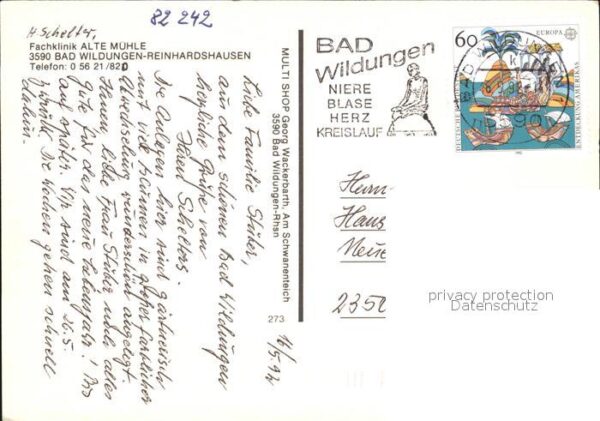 82 242
H. Schelter,
Fachklinik ALTE MÜHLE
3590 BAD WILDUNGEN-REINHARDSHAUSEN
Telefon: 0 56 21/82 0
16/5.92
Liebe Familie Stüber,
aus dem schönen Bad Wildungen
herzliche Grüße von
Horst Schelter.
Die Anlagen hier sind gärtnerisch
mit viel Können in großer farblicher
Abwechslung wunderschön angelegt.
Ihnen, liebe Frau Stüber noch alles
Gute für das neue Lebensjahr! Bis
auf später. Wir sind am 26.5.
zurück. Die Wochen gehen schnell
dahin.
MULTI SHOP Georg Wackerbarth, Am Schwanenteich
3590 Bad Wildungen-Rhsn
273
BAD
Wildungen
NIERE
BLASE
HERZ
KREISLAUF
60
EUROPA
DEUTSCHE BUNDESPOST
ENTDECKUNG AMERIKAS
1992
Herrn
Hans
Neue
2350
privacy protection
Datenschutz